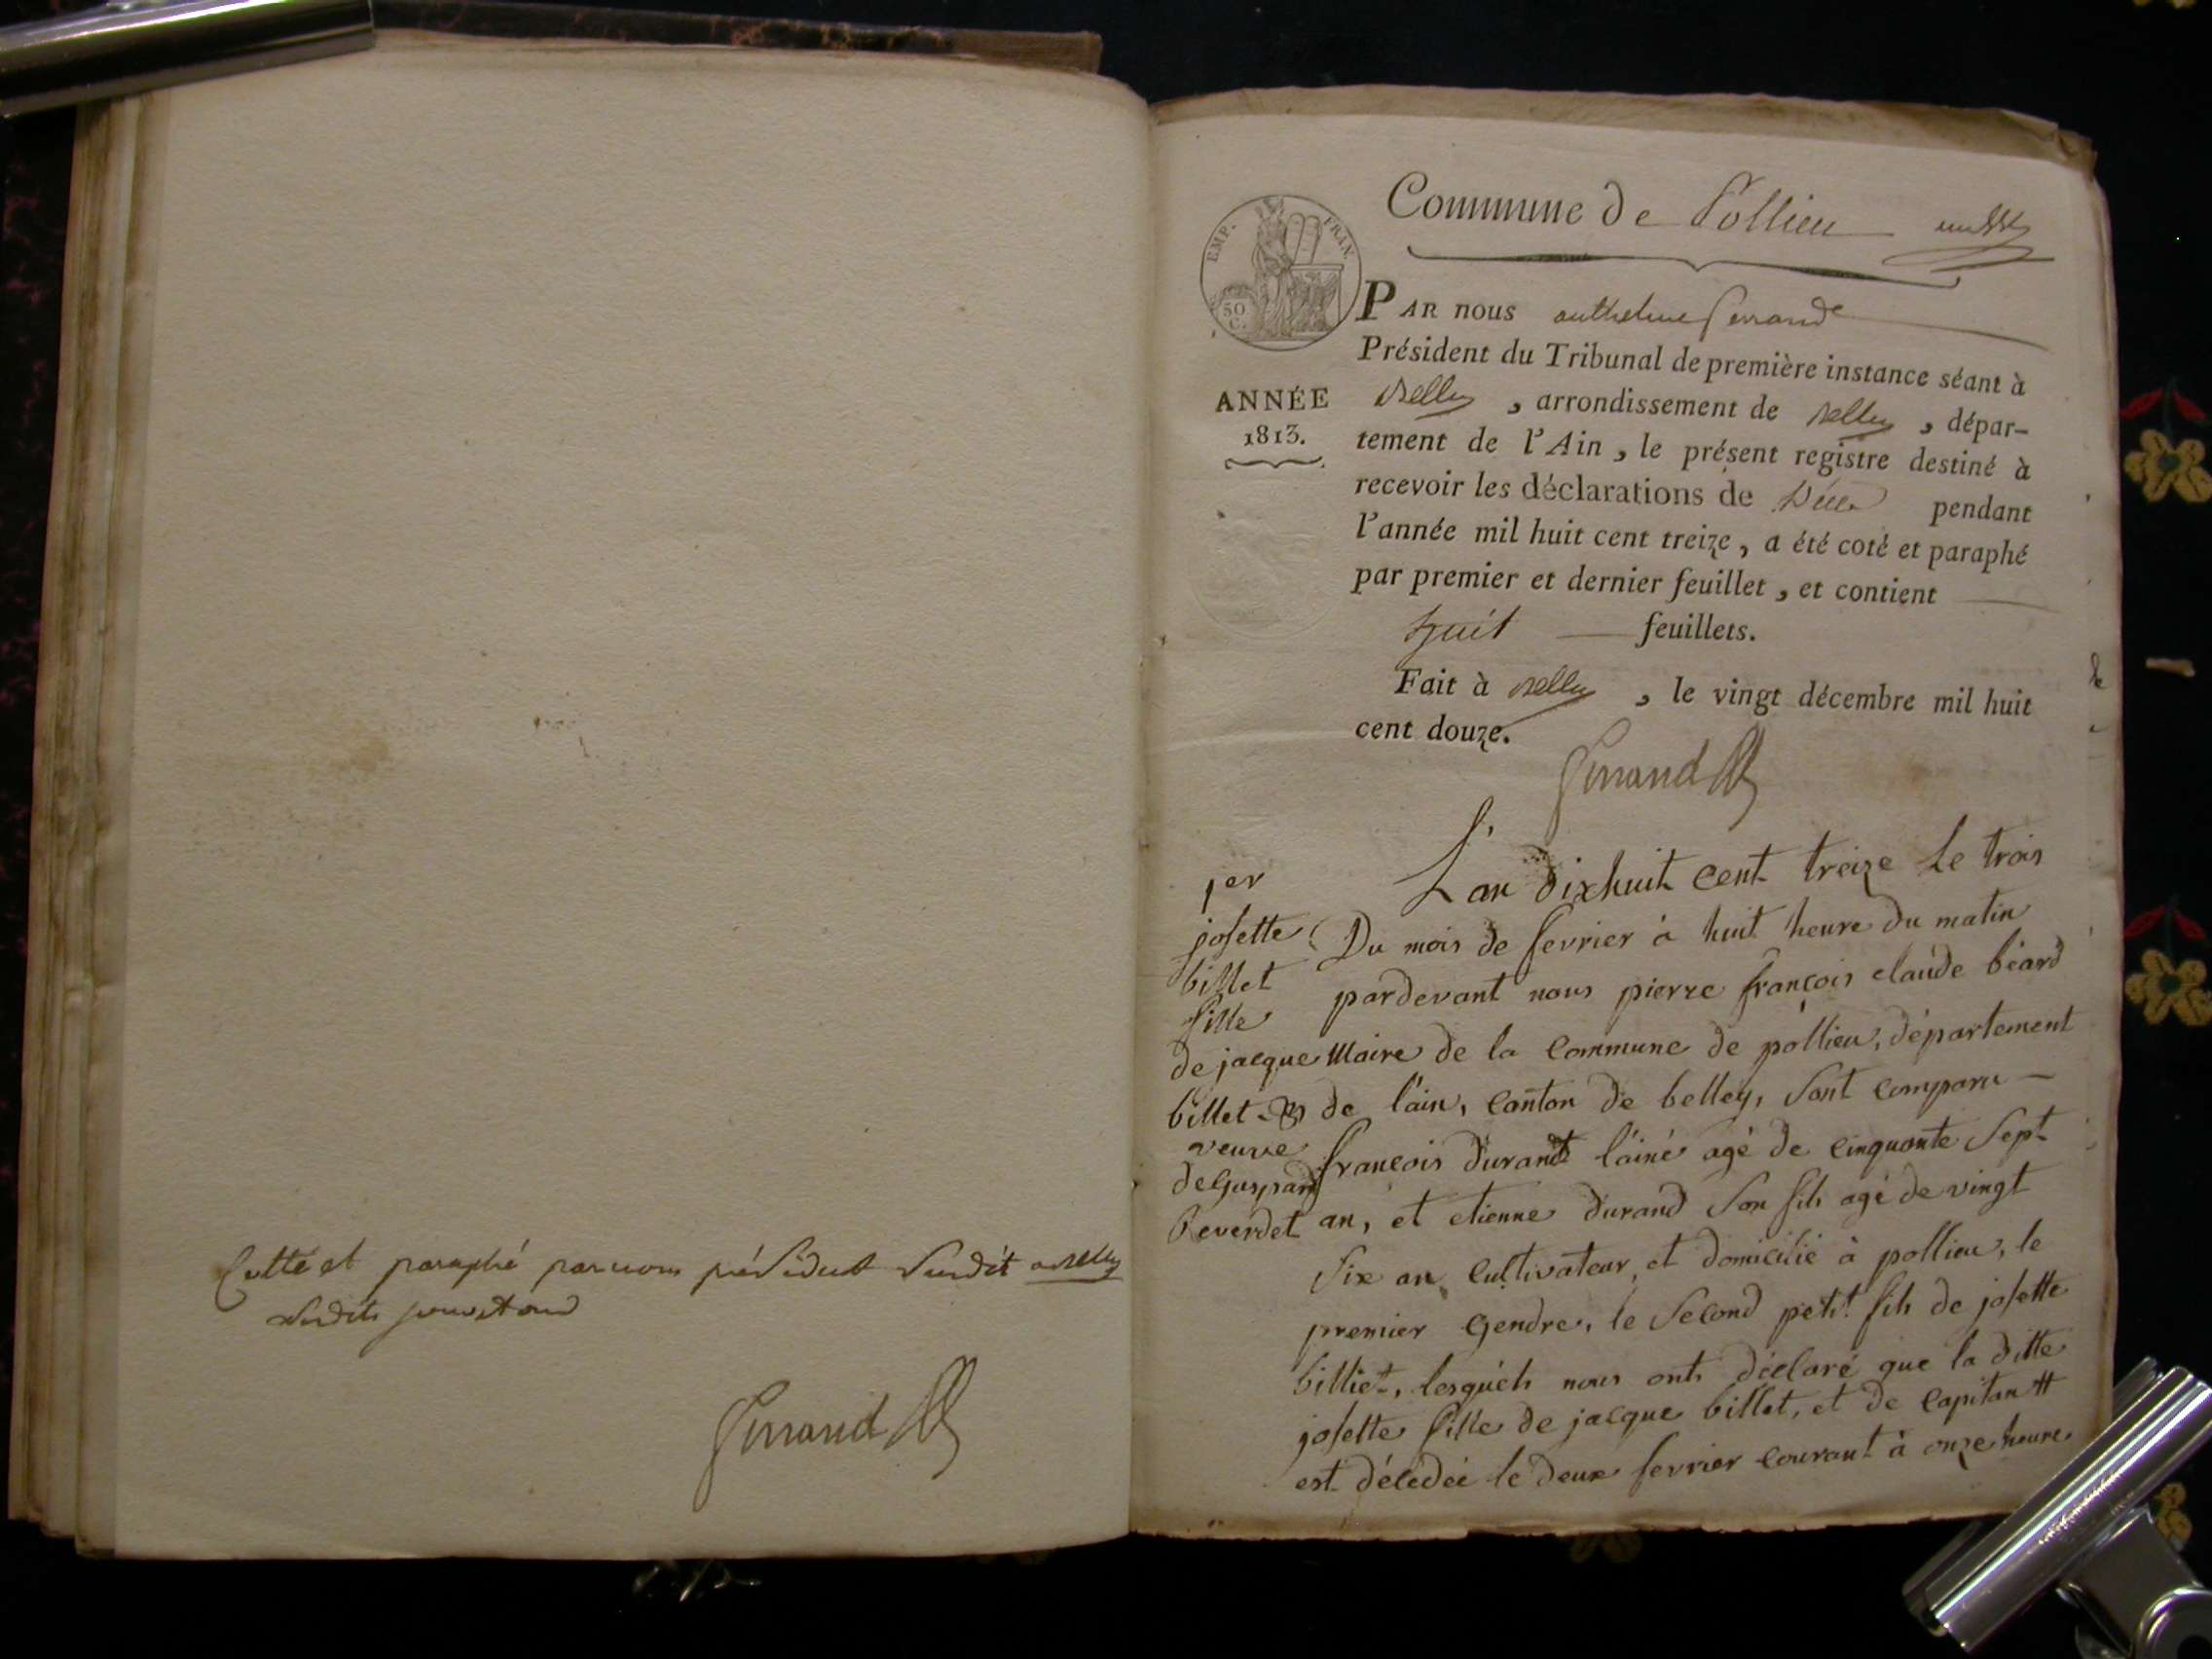 Cotté et paraphé par nous président susdit a belley
susdits jour et an
Ferrand
Commune de Pollieu
EMP. FRAN.
50
C.
ANNÉE
1813.
PAR nous anthelme ferrand
Président du Tribunal de première instance séant à
Belley, arrondissement de Belley, dépar-
tement de l'Ain, le présent registre destiné à
recevoir les déclarations de Décès pendant
l'année mil huit cent treize, a été coté et paraphé
par premier et dernier feuillet, et contient
huit feuillets.
Fait à Belley, le vingt décembre mil huit
cent douze.
Ferrand
1er
josette
billet
fille
de jacque
billet
veuve
de Gaspard
Reverdet
L'an dixhuit cent treize Le trois
Du mois de fevrier à huit heure du matin
pardevant nous pierre françois claude béard
Maire de la Commune de pollieu, département
de l'ain, canton de belley, sont comparu
françois durand l'ainé agé de cinquante sept
an, et etienne durand son fils agé de vingt
six an cultivateur, et domicilié à pollieu, le
premier Gendre, le second petit fils de josette
billiet, lesquels nous onts déclaré que la ditte
josette fille de jacque billet, et de capitan
est décédée le deux fevrier courant à onze heure